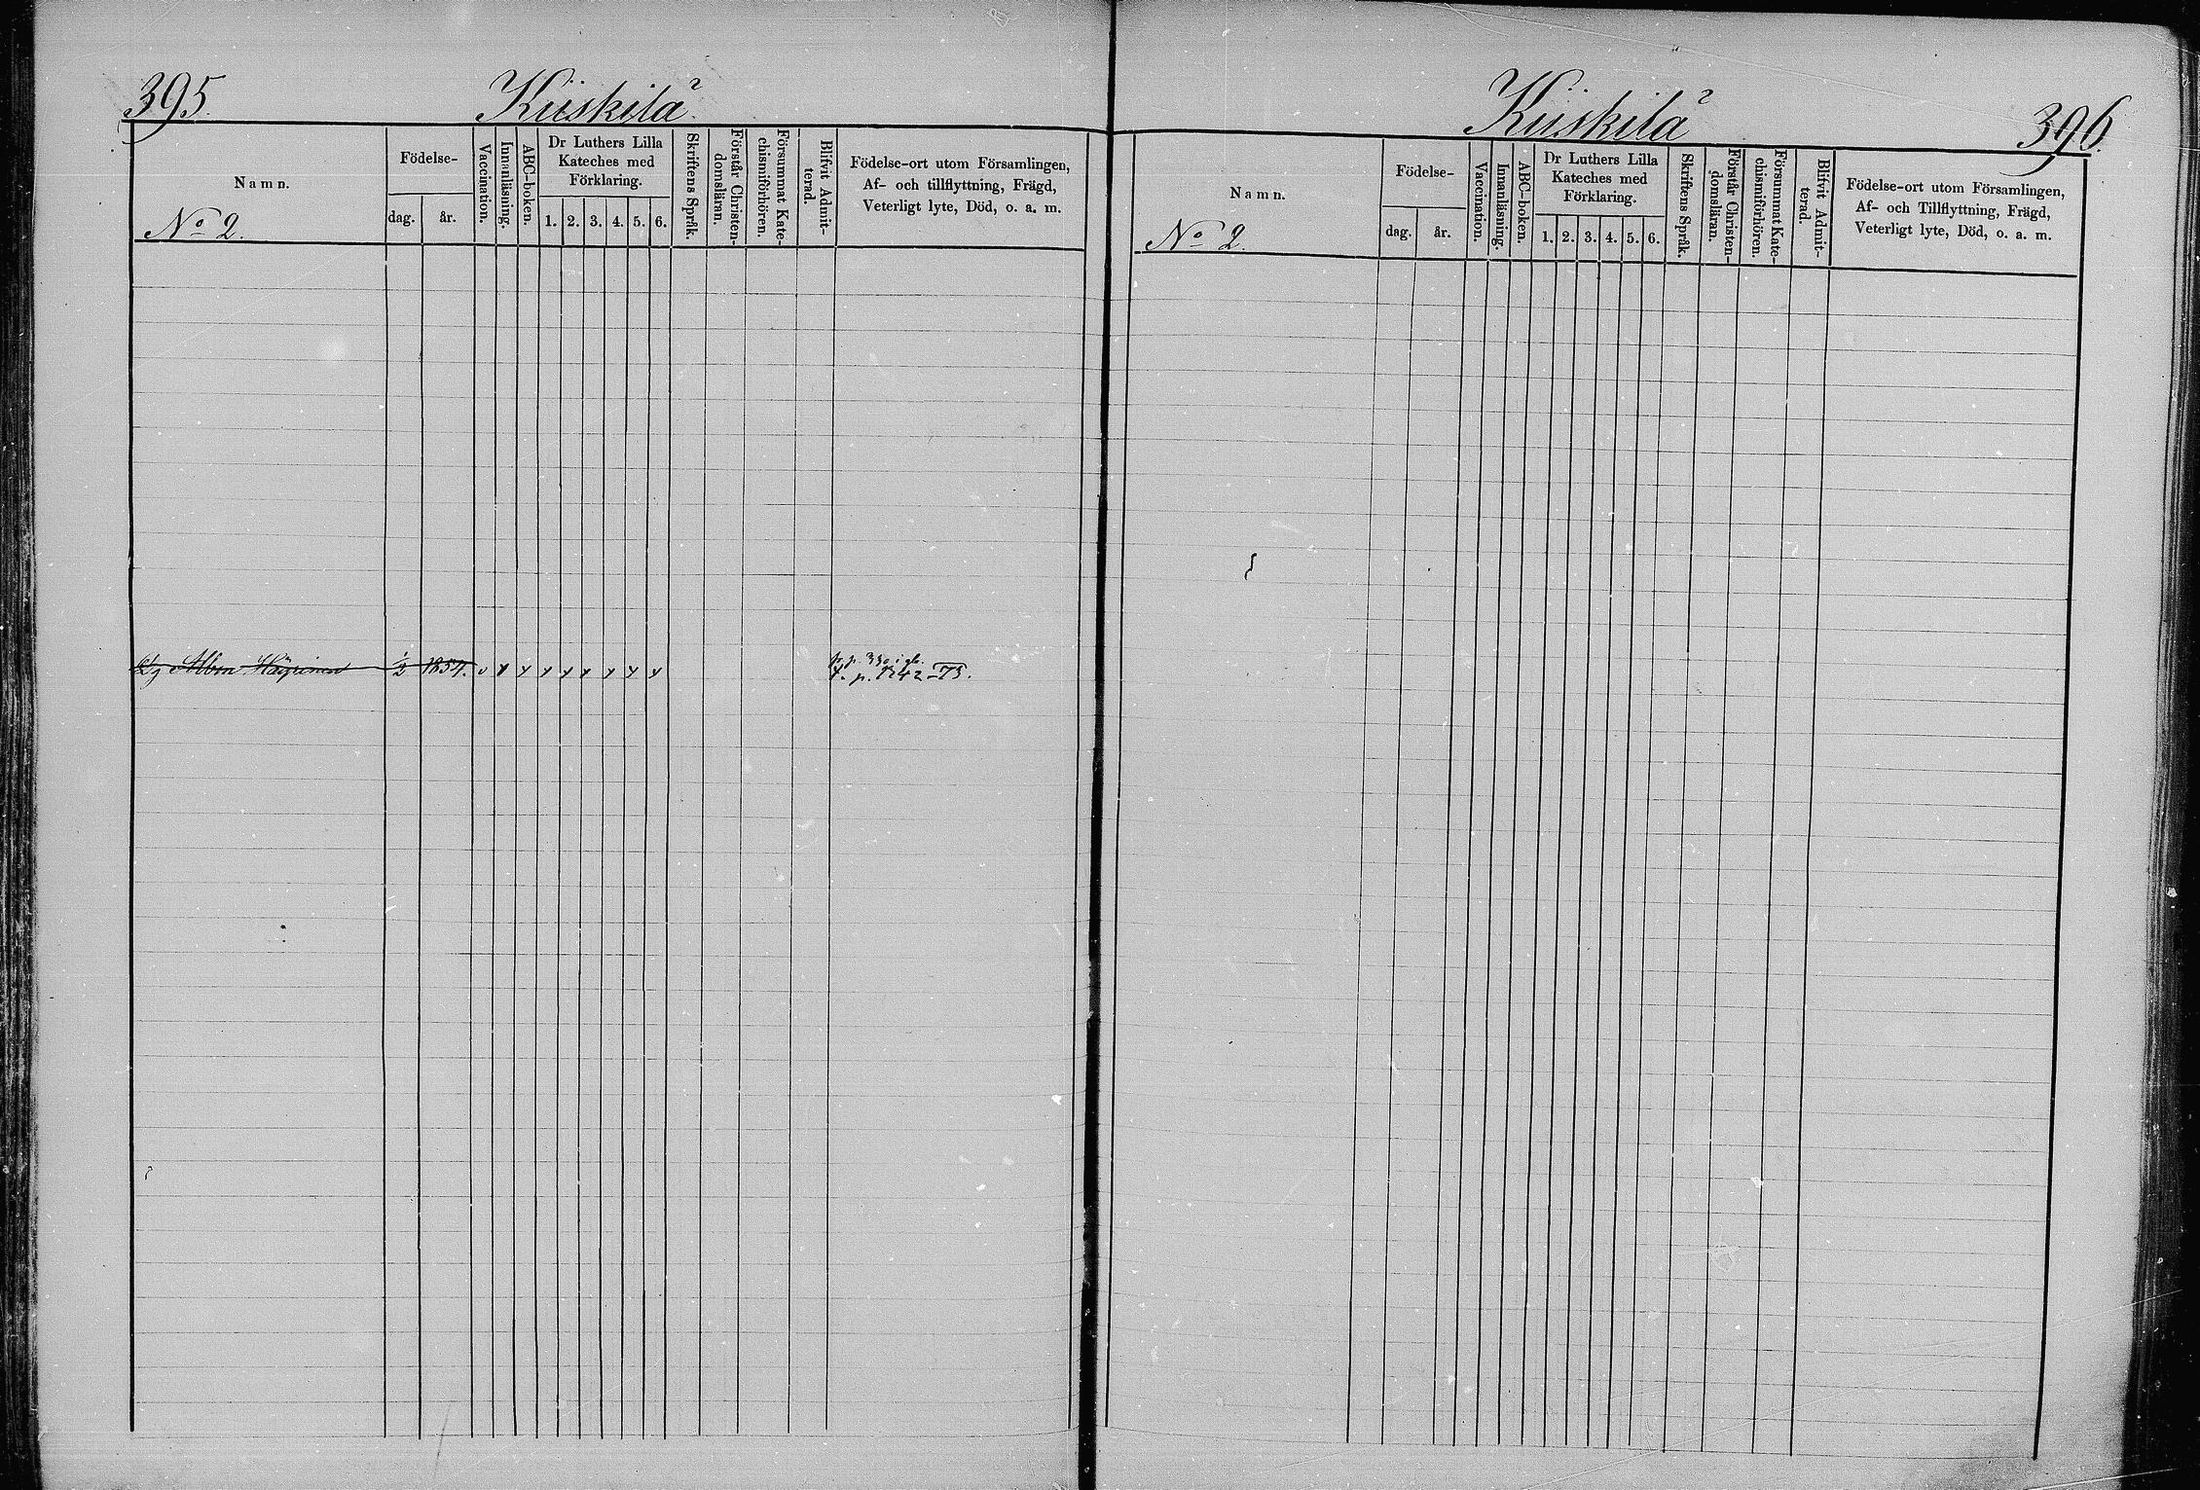 395.
Kiiskilä
Namn.
No 2.
Födelse-
dag.
år.
Vaccination.
Innanläsning.
ABC-boken.
Dr Luthers Lilla
Kateches med
Förklaring.
1. 2. 3. 4. 5. 6.
Skriftens Språk.
Förstår Christen-
domsläran.
Försummat Kate-
chismiförhören.
Blifvit Admit-
terad.
Födelse-ort utom Församlingen,
Af- och tillflyttning, Frägd,
Veterligt lyte, Död, o. a. m.
Albin Häyrinen 1/2 1854.
p. 1242 -73.
Kiiskilä
396.
Namn.
No 2.
Födelse-
dag.
år.
Vaccination.
Innanläsning.
ABC-boken.
Dr Luthers Lilla
Kateches med
Förklaring.
1. 2. 3. 4. 5. 6.
Skriftens Språk.
Förstår Christen-
domsläran.
Försummat Kate-
chismiförhören.
Blifvit Admit-
terad.
Födelse-ort utom Församlingen,
Af- och Tillflyttning, Frägd,
Veterligt lyte, Död, o. a. m.